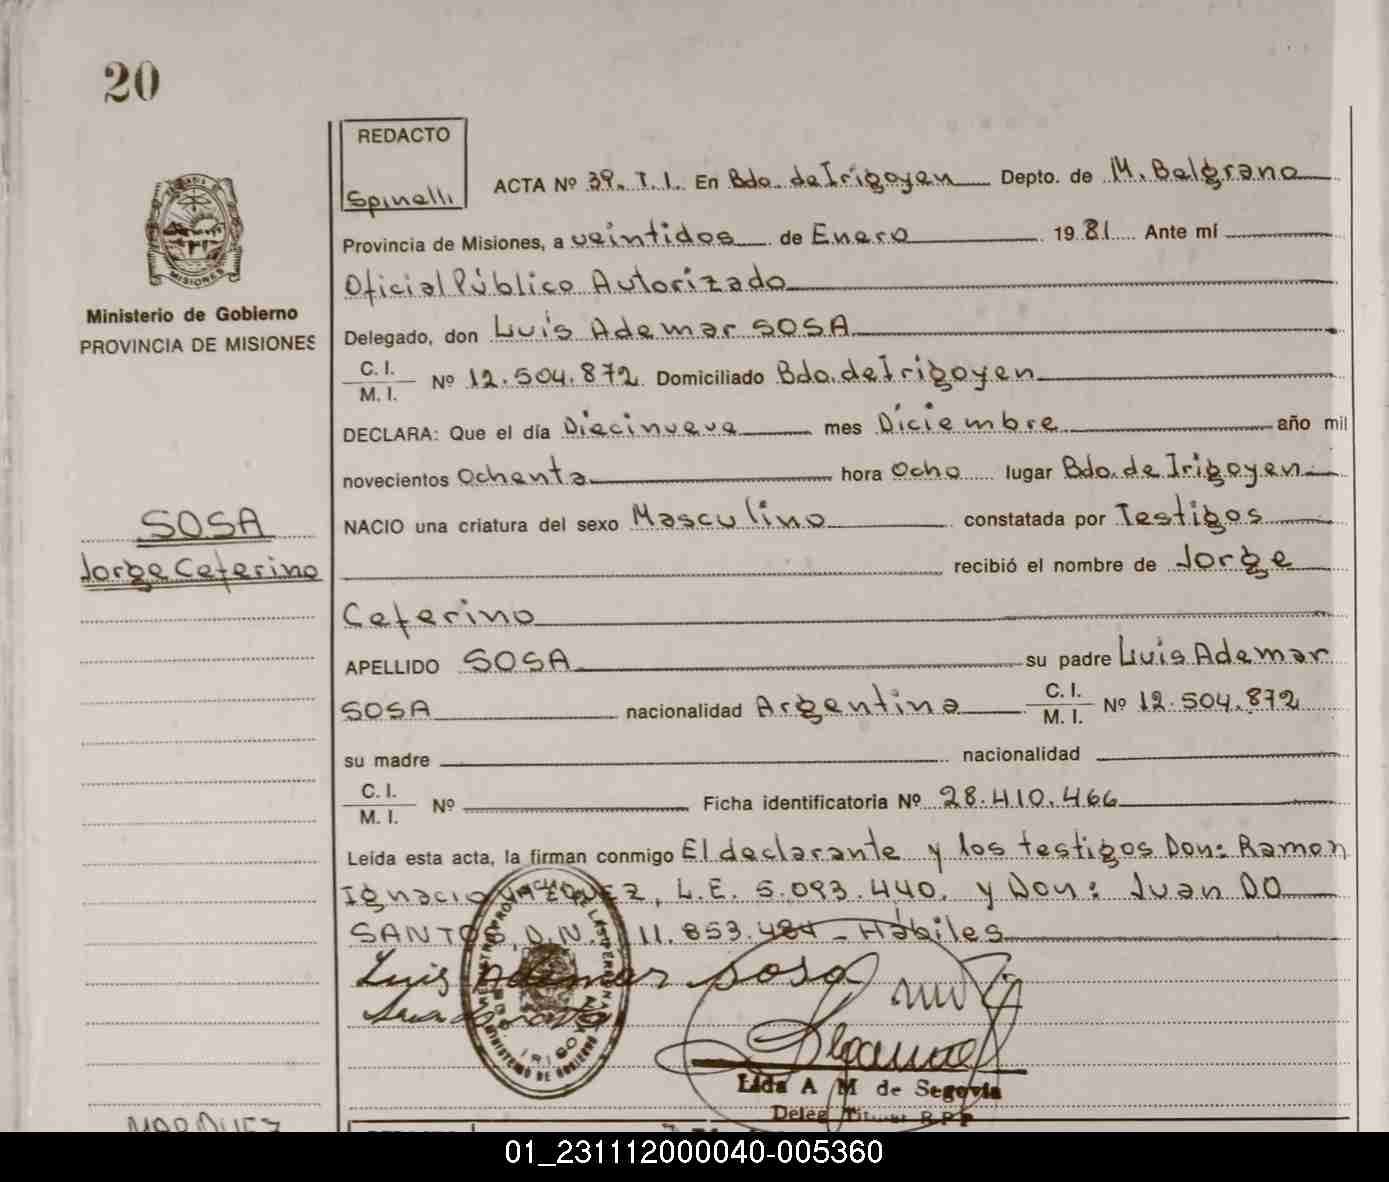 20
REDACTO
Spinelli
ACTA Nº 39. T. I. En Bdo. de Irigoyen Depto. de M. Belgrano
Provincia de Misiones, a veintidos de Enero 1981 Ante mí
Oficial Público Autorizado
Delegado, don Luis Ademar SOSA
C. I.
M. I. Nº 12.504.872 Domiciliado Bdo. de Irigoyen
DECLARA: Que el día Diecinueve mes Diciembre año mil
novecientos Ochenta hora Ocho lugar Bdo. de Irigoyen
NACIO una criatura del sexo Masculino constatada por Testigos
recibió el nombre de Jorge
Ceferino
APELLIDO SOSA su padre Luis Ademar
SOSA nacionalidad Argentina C. I.
M. I. Nº 12.504.872
su madre nacionalidad
C. I.
M. I. Nº Ficha identificatoria Nº 28.410.466
Leída esta acta, la firman conmigo El declarante y los testigos Don: Ramon
Ignacio L.E. 5.093.440. y Don: Juan DO
SANTOS, D.N.I 11.853.484 - Hábiles
Luis Ademar Sosa
Lida A M de Segovia
Deleg Titular R.P.P
MISIONES
Ministerio de Gobierno
PROVINCIA DE MISIONES
SOSA
Jorge Ceferino
MARQUEZ
MINISTERIO DE GOBIERNO
01_231112000040-005360